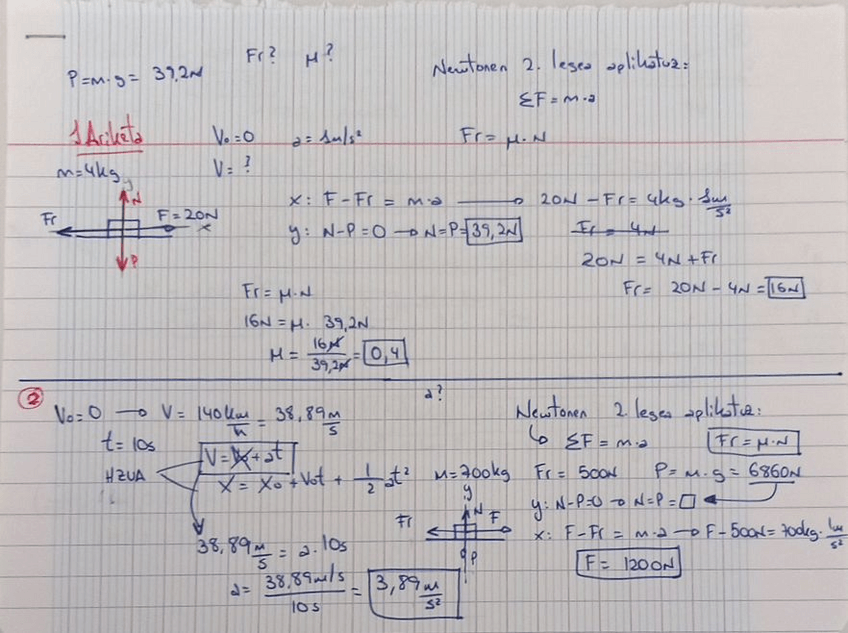 Fr? μ?
P=m·g= 39,2N
Newtonen 2. legea aplikatuz:
ΣF=m·a
1 Ariketa
V₀=0 a=1m/s² Fr=μ·N
m=4kg V=?
y N
Fr F=20N x
P
x: F-Fr = m·a → 20N -Fr=4kg·1m/s²
y: N-P=0 → N=P=39,2N
Fr = 4N
20N = 4N+Fr
Fr= 20N - 4N=16N
Fr=μ·N
16N=μ· 39,2N
μ= 16N/39,2N=0,4
2
a?
V₀=0 → V= 140km/h=38,89m/s
Newtonen 2. legea aplikatuz:
t=10s
↳ ΣF=m·a Fr=μ·N
HZUA
V=V₀+at
X= X₀+V₀t+ 1/2 at²
M=700kg Fr= 500N P=m·g=6860N
y: N-P=0 → N=P=□
y N
Fr F
P
x: F-Fr = m·a → F-500N=700kg·1m/s²
F= 1200N
38,89m/s=a·10s
a= 38,89m/s/10s = 3,89m/s²